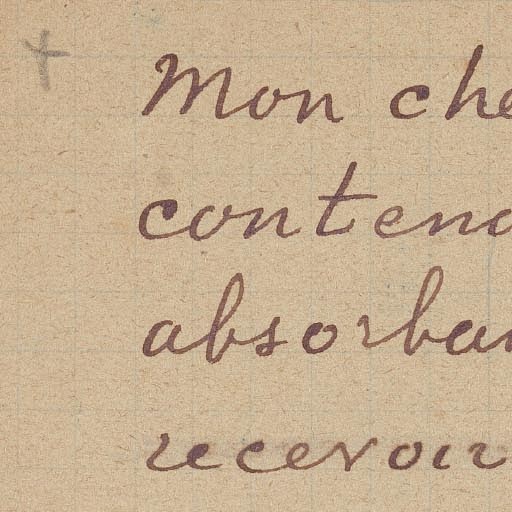 Mon che
contend
absorban
recevoir